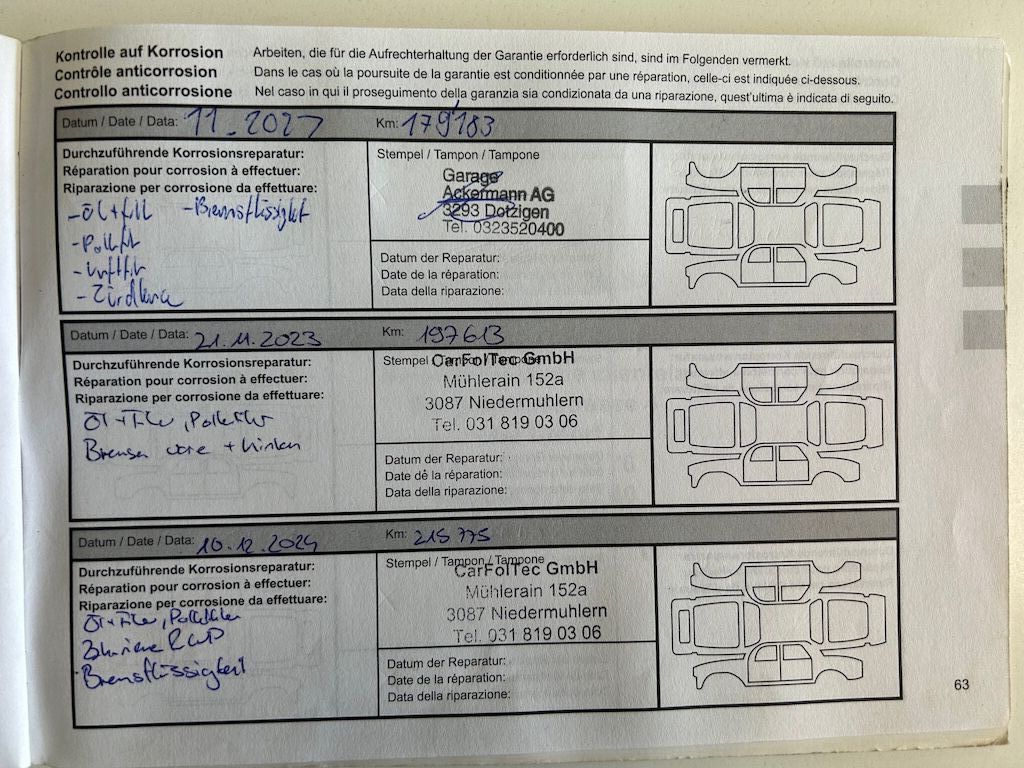 Kontrolle auf Korrosion Arbeiten, die für die Aufrechterhaltung der Garantie erforderlich sind, sind im Folgenden vermerkt.
Contrôle anticorrosion Dans le cas où la poursuite de la garantie est conditionnée par une réparation, celle-ci est indiquée ci-dessous.
Controllo anticorrosione Nel caso in qui il proseguimento della garanzia sia condizionata da una riparazione, quest'ultima è indicata di seguito.
Datum / Date / Data: Km: 179'183
Durchzuführende Korrosionsreparatur:
Réparation pour corrosion à effectuer:
Riparazione per corrosione da effettuare:
- Bremsflüssigkeit
Stempel / Tampon / Tampone
Garage
Ackermann AG
3293 Dotzigen
Tel. 0323520400
Datum der Reparatur:
Date de la réparation:
Data della riparazione:
Datum / Date / Data: 21.11.2023 Km: 197613
Durchzuführende Korrosionsreparatur:
Réparation pour corrosion à effectuer:
Riparazione per corrosione da effettuare:
Öl + Filter, Pollenfilter
Bremsen vorne + hinten
Stempel / Tampon / Tampone
CarFolTec GmbH
Mühlerain 152a
3087 Niedermuhlern
Tel. 031 819 03 06
Datum der Reparatur:
Date de la réparation:
Data della riparazione:
Datum / Date / Data: 10.12.2024 Km: 215 775
Durchzuführende Korrosionsreparatur:
Réparation pour corrosion à effectuer:
Riparazione per corrosione da effettuare:
Öl + Filter, Pollenfilter
Bremsflüssigkeit
Stempel / Tampon / Tampone
CarFolTec GmbH
Mühlerain 152a
3087 Niedermuhlern
Tel. 031 819 03 06
Datum der Reparatur:
Date de la réparation:
Data della riparazione:
63